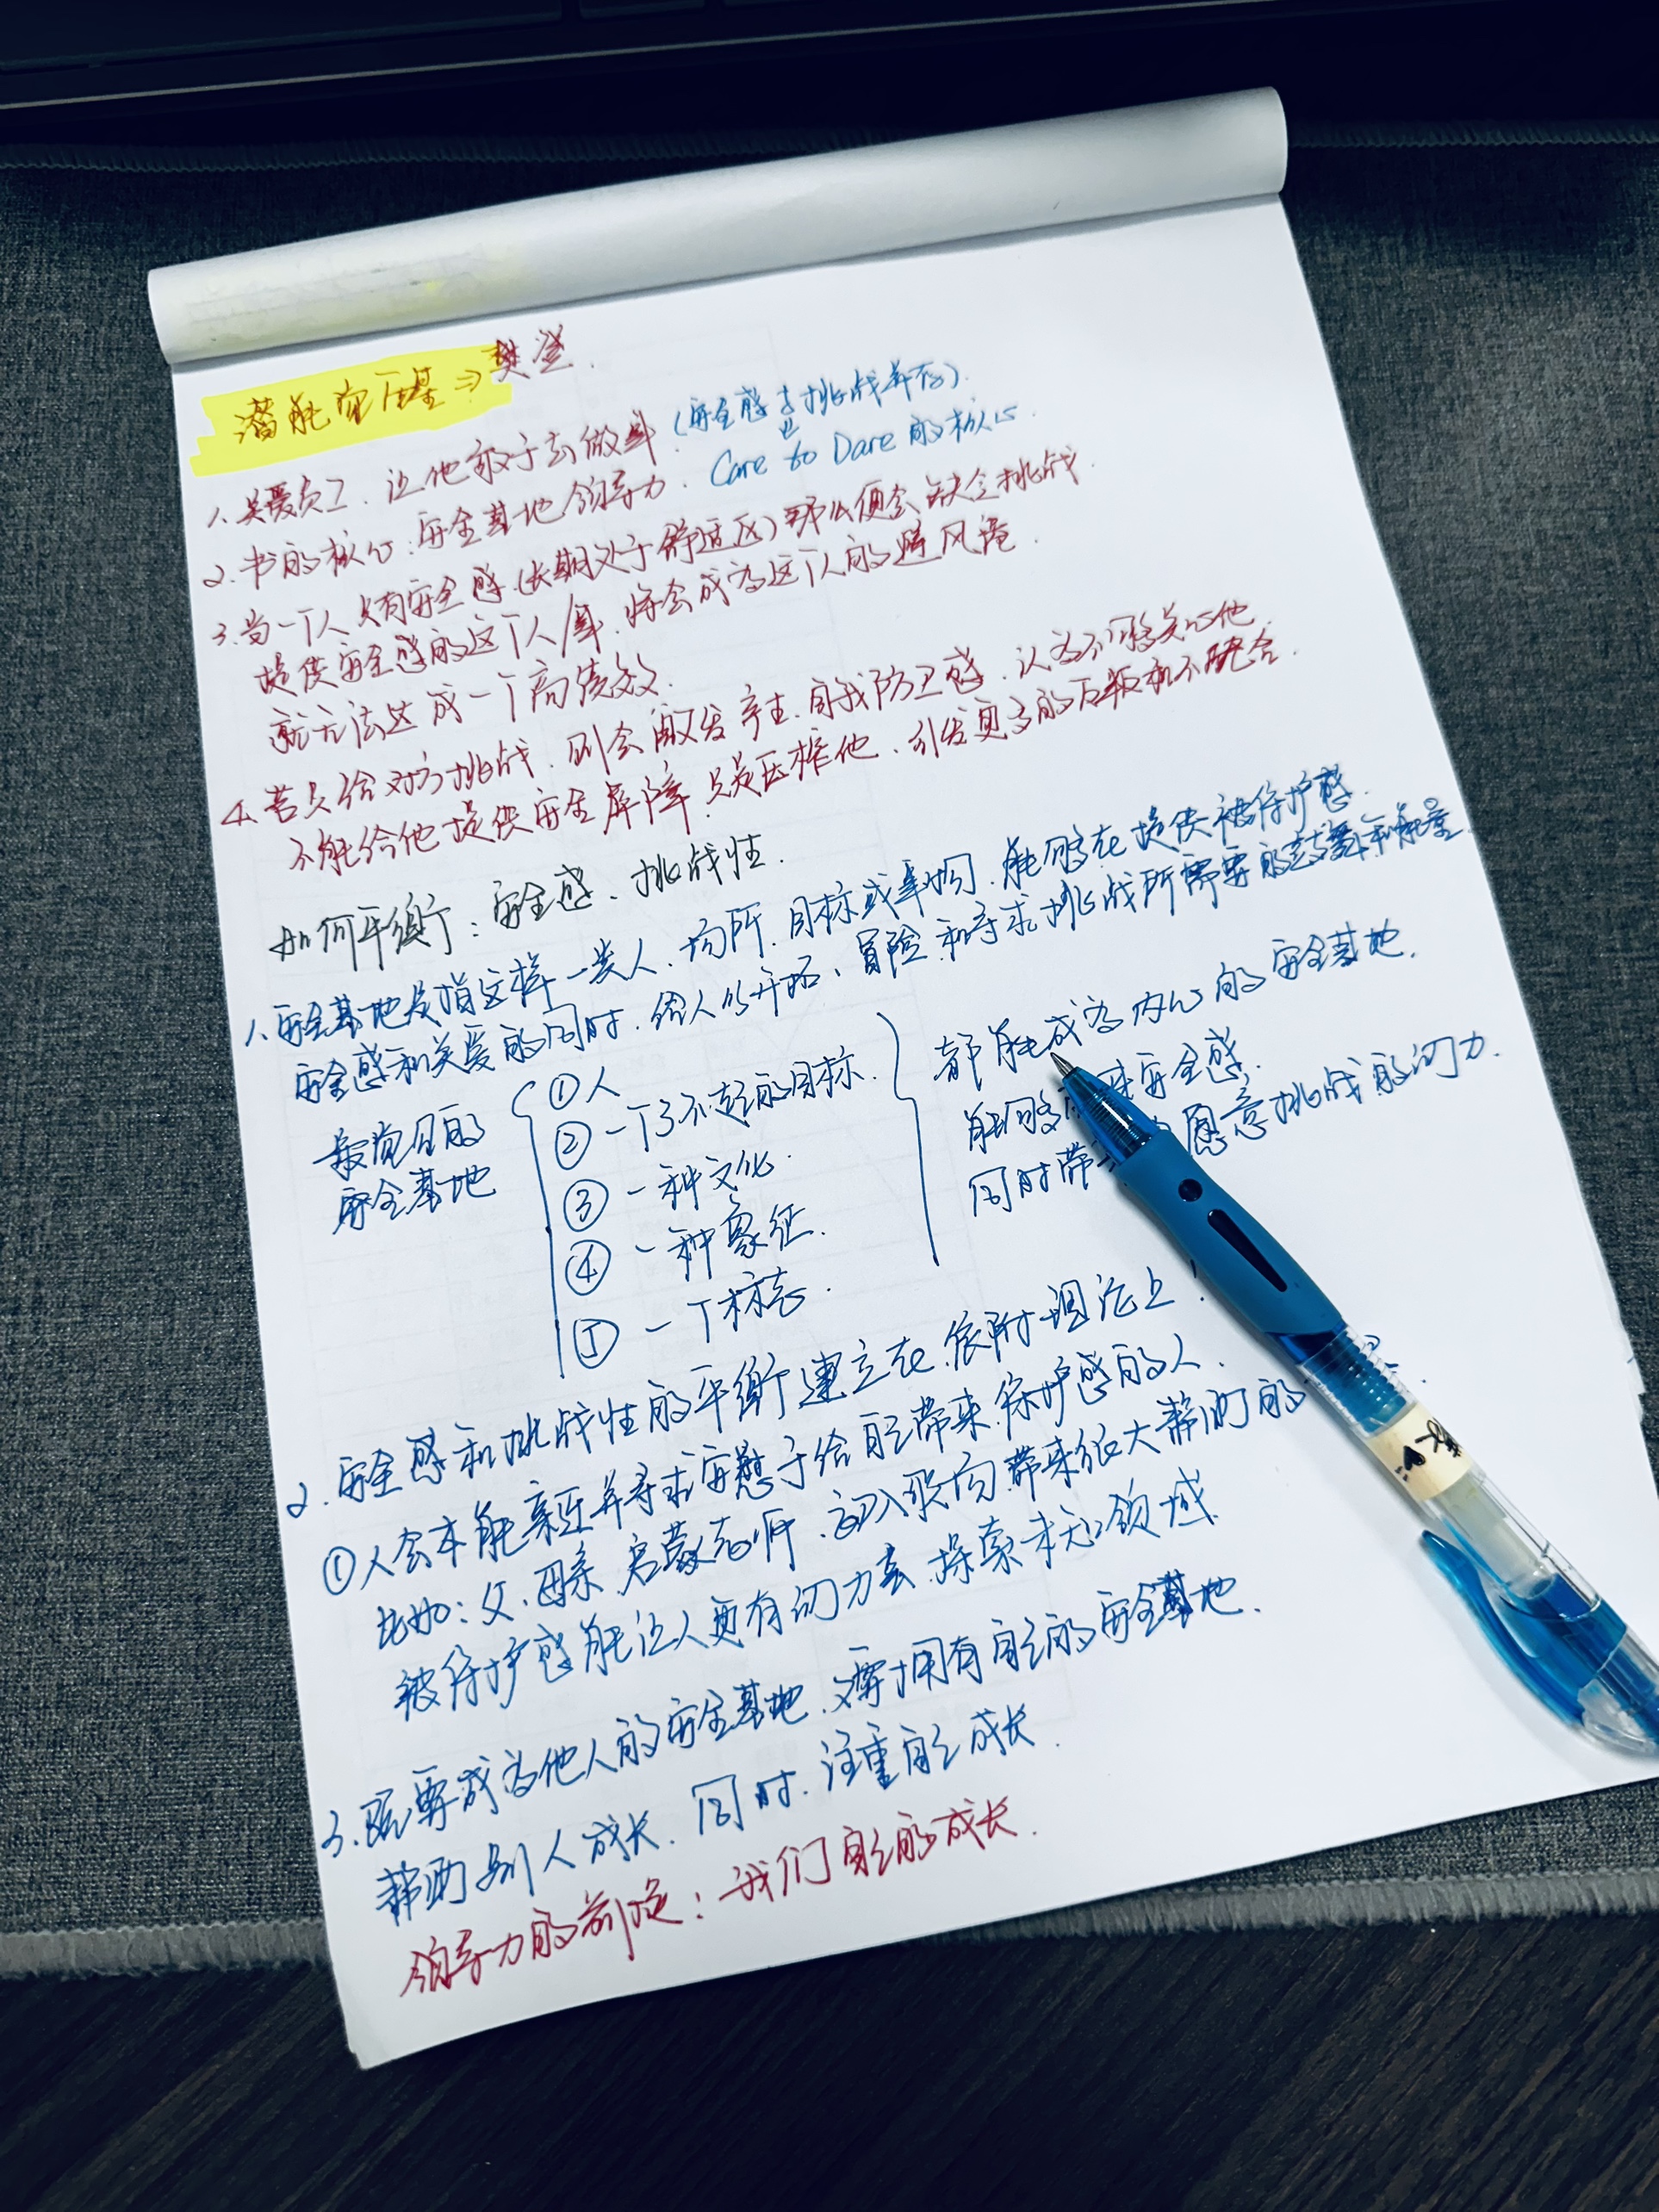 潜能量压基⇒樊登.
1.关爱员工.让他敢于去做事(安全感与挑战并存).
2.书的核心:安全基地领导力. Care to Dare的核心
3.当一个人只有安全感(长期处于舒适区)那么便会缺乏挑战.
提供安全感的这个人/事.将会成为这个人的避风港.
就无法达成一个高绩效.
4.若只给对方挑战.则会激发产生.自我防卫感.认为不够关心他.
不能给他提供安全屏障.只是压榨他.引发更多的反叛和不融合.
如何平衡:安全感、挑战性.
1.安全基地是指这样一类人、场所.目标或事物.能够在提供被保护感.
安全感和关爱的同时.给人以开拓、冒险.和寻求挑战所需要的鼓舞和能量.
最常见的
安全基地
①人
②一个了不起的目标.
③一种文化.
④一种象征.
⑤一个标志.
都能成为内心的安全基地.
能够 安全感.
同时带 愿意挑战的动力.
2.安全感和挑战性的平衡建立在.依附理论上!
①人会本能亲近并寻求安慰于给自己带来.保护感的人.
比如:父.母亲.启蒙老师.初入职场.带来很大帮助的
被保护感能让人更有动力去.探索未知领域.
3.既要成为他人的安全基地.又要拥有自己的安全基地.
帮助别人成长.同时.注重自己成长.
领导力的前提:我们自己的成长.